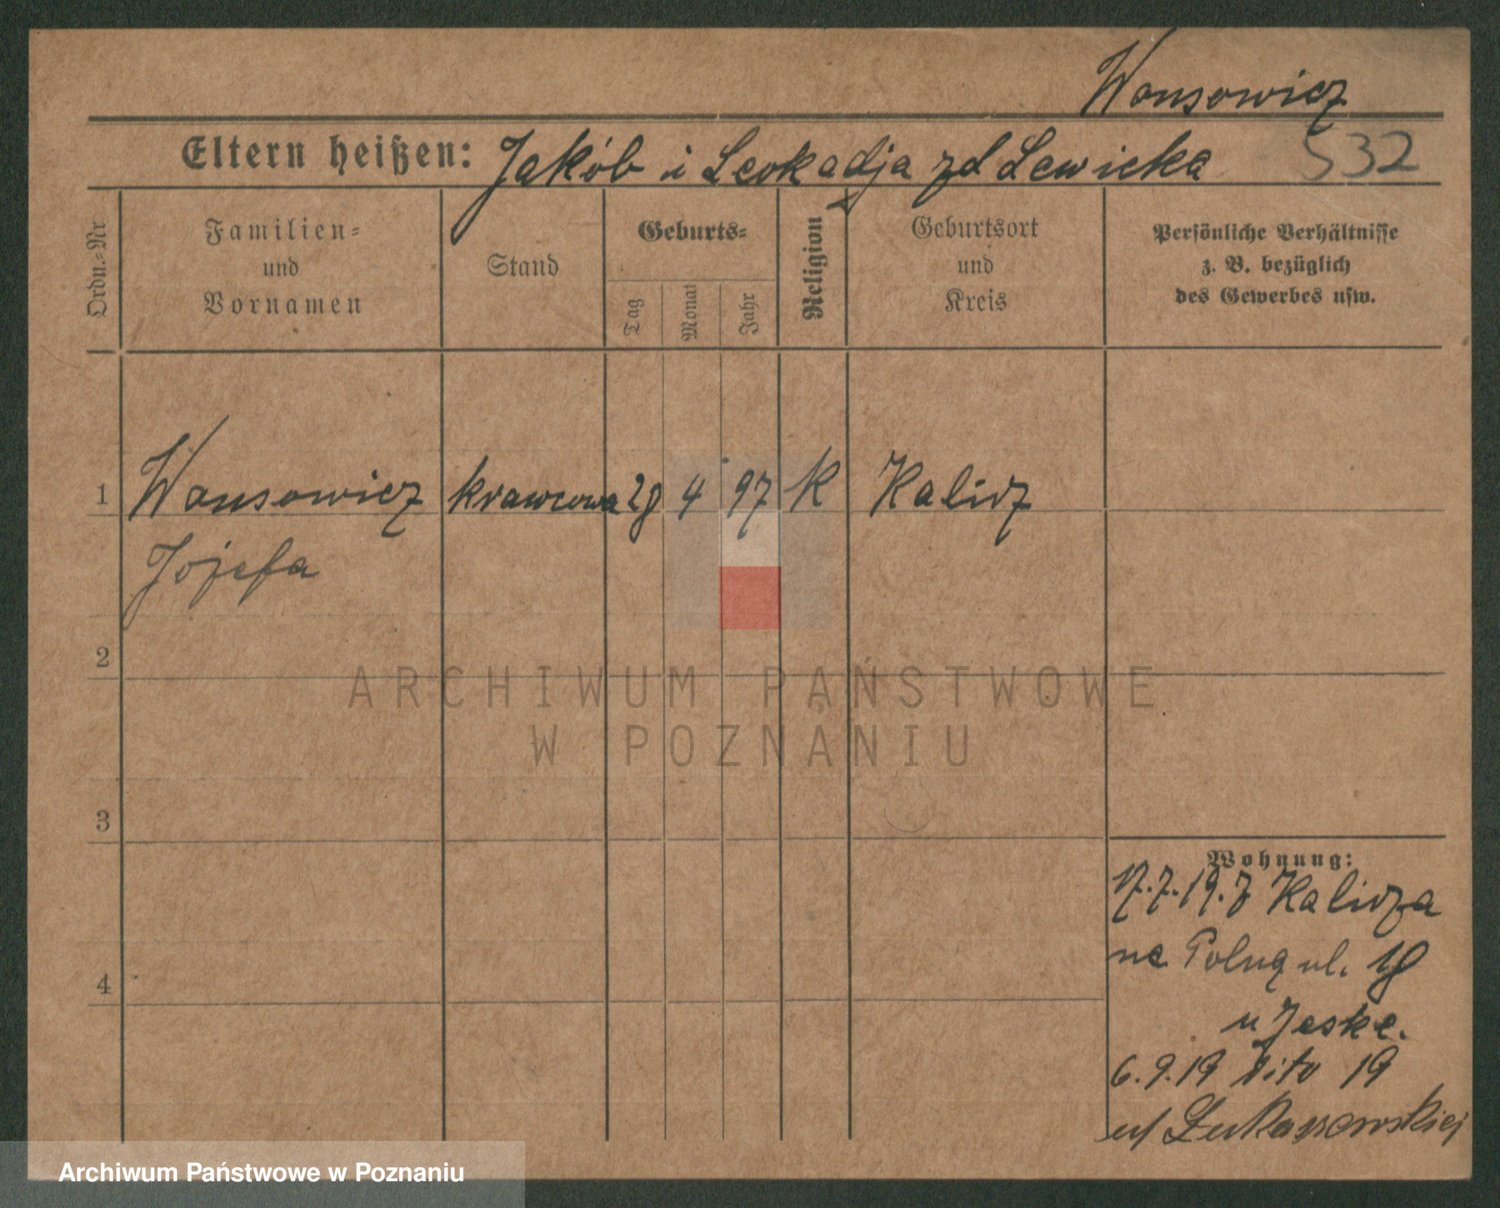 Wonsowicz
Eltern heißen: Jakób i Leokadja zd Lewicka
532
Ordn.-Nr
Familien-
und
Vornamen
Stand
Geburts-
Tag
Monat
Jahr
Religion
Geburtsort
und
Kreis
Persönliche Verhältnisse
z. B. bezüglich
des Gewerbes usw.
1 Wonsowicz krawcowa 28 4 97 K Kalisz
Józefa
2
ARCHIWUM PAŃSTWOWE
W POZNANIU
3
4
Wohnung:
17.7.19. z Kalisza
na Polną ul. 18
u Jeske.
6.9.19 dito 19
u Łukaszewskiej
Archiwum Państwowe w Poznaniu